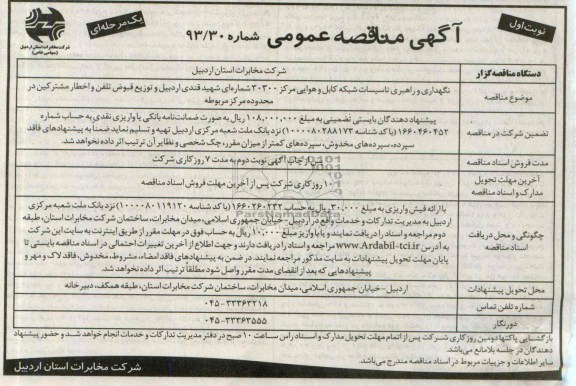 نوبت اول
آگهی مناقصه عمومی شماره ۹۳/۳۰
یک مرحله‌ای
شرکت مخابرات استان اردبیل
(سهامی خاص)
دستگاه مناقصه گزار
شرکت مخابرات استان اردبیل
موضوع مناقصه
نگهداری و راهبری تاسیسات شبکه کابل و هوایی مرکز ۳۰۳۰۰ شماره‌ای شهید قندی اردبیل و توزیع قبوض تلفن و اخطار مشترکین در
محدوده مرکز مربوطه
تضمین شرکت در مناقصه
پیشنهاد دهندگان بایستی تضمینی به مبلغ ۱۰۸,۰۰۰,۰۰۰ ریال به صورت ضمانت‌نامه بانکی یا واریزی نقدی به حساب شماره
۱۶۶۰۴۶۰۴۵۲ (با کد شناسه ۱۰۰۰۰۸۰۲۸۸۱۷۳) نزد بانک ملت شعبه مرکزی اردبیل تهیه و تسلیم نماید ضمنا به پیشنهادهای فاقد
سپرده، سپرده‌های مخدوش، سپرده‌های کمتر از میزان مقرر، چک شخصی و نظایر آن ترتیب اثر داده نخواهد شد.
مدت فروش اسناد مناقصه
پس از چاپ آگهی نوبت دوم به مدت ۷ روز کاری شرکت
آخرین مهلت تحویل
مدارک و اسناد مناقصه
۱۰ روز کاری شرکت پس از آخرین مهلت فروش اسناد مناقصه
چگونگی و محل دریافت
اسناد مناقصه
با ارائه فیش واریزی به مبلغ ۳۰,۰۰۰ ریال به حساب ۱۶۶۰۲۶۰۲۳۲ (با کد شناسه ۱۰۰۰۰۸۰۱۱۹۱۲۰) نزد بانک ملت شعبه مرکزی
اردبیل به مدیریت تدارکات و خدمات واقع در اردبیل-خیابان جمهوری اسلامی، میدان مخابرات، ساختمان شرکت مخابرات استان، طبقه
دوم مراجعه و اسناد را دریافت نمایند و یا با واریز مبلغ ۱۰,۰۰۰ ریال به حساب فوق در مهلت مقرر از طریق اینترنت به سایت این شرکت
به آدرس www.Ardabil-tci.ir مراجعه و اسناد را دریافت دارند و جهت اطلاع از آخرین تغییرات احتمالی در اسناد مناقصه بایستی تا
پایان مهلت تحویل پیشنهادات به سایت مذکور مراجعه نمایند. در ضمن به پیشنهادهای فاقد امضاء، مشروط، مخدوش، فاقد لاک و مهر و
پیشنهادهایی که بعد از انقضای مدت مقرر واصل شود مطلقاً ترتیب اثر داده نخواهد شد.
محل تحویل پیشنهادات
اردبیل-خیابان جمهوری اسلامی، میدان مخابرات، ساختمان شرکت مخابرات استان، طبقه همکف، دبیرخانه
شماره تلفن تماس
۰۴۵-۳۳۳۶۳۲۱۸
دورنگار
۰۴۵-۳۳۳۶۳۵۵۵
بازگشایی پاکتها دومین روز کاری شرکت پس از اتمام مهلت تحویل مدارک و اسناد راس ساعت ۱۰ صبح در دفتر مدیریت تدارکات و خدمات انجام خواهد شد و حضور پیشنهاد
دهندگان در جلسه بلامانع می‌باشد.
سایر اطلاعات و جزییات مربوط در اسناد مناقصه مندرج می‌باشد.
شرکت مخابرات استان اردبیل